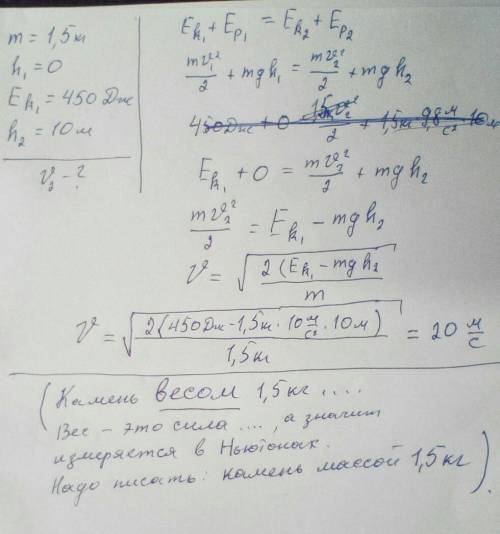 m = 1,5 кг
h₁ = 0
Eₖ₁ = 450 Дж
h₂ = 10 м
v₂ - ?
Eₖ₁ + Eₚ₁ = Eₖ₂ + Eₚ₂
mv₁²/2 + mgh₁ = mv₂²/2 + mgh₂
450 Дж + 0 1,5 v₂²/2 + 1,5 кг 9,8 м/с² · 10 м
Eₖ₁ + 0 = mv₂²/2 + mgh₂
mv₂²/2 = Eₖ₁ - mgh₂
v = √(2(Eₖ₁ - mgh₂/m
v = √(2(450 Дж - 1,5 кг · 10 м/с² · 10 м)/1,5 кг) = 20 м/с
(Камень весом 1,5 кг ....
Вес - это сила ...., а значит
измеряется в Ньютонах.
Надо писать: камень массой 1,5 кг).